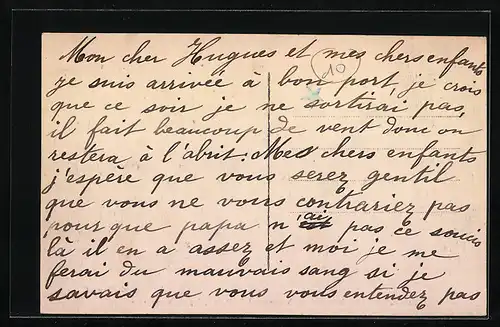 Mon cher Hugues et mes chers enfants
10
je suis arrivée à bon port, je crois
que ce soir je ne sortirai pas,
il fait beaucoup de vent donc on
restera à l'abrit: Mes chers enfants
j'espère que vous serez gentil
que vous ne vous contrariez pas
pour que papa n'ait pas ce soucis
là il en a assez et moi je me
ferai du mauvais sang si je
savais que vous vous entendez pas